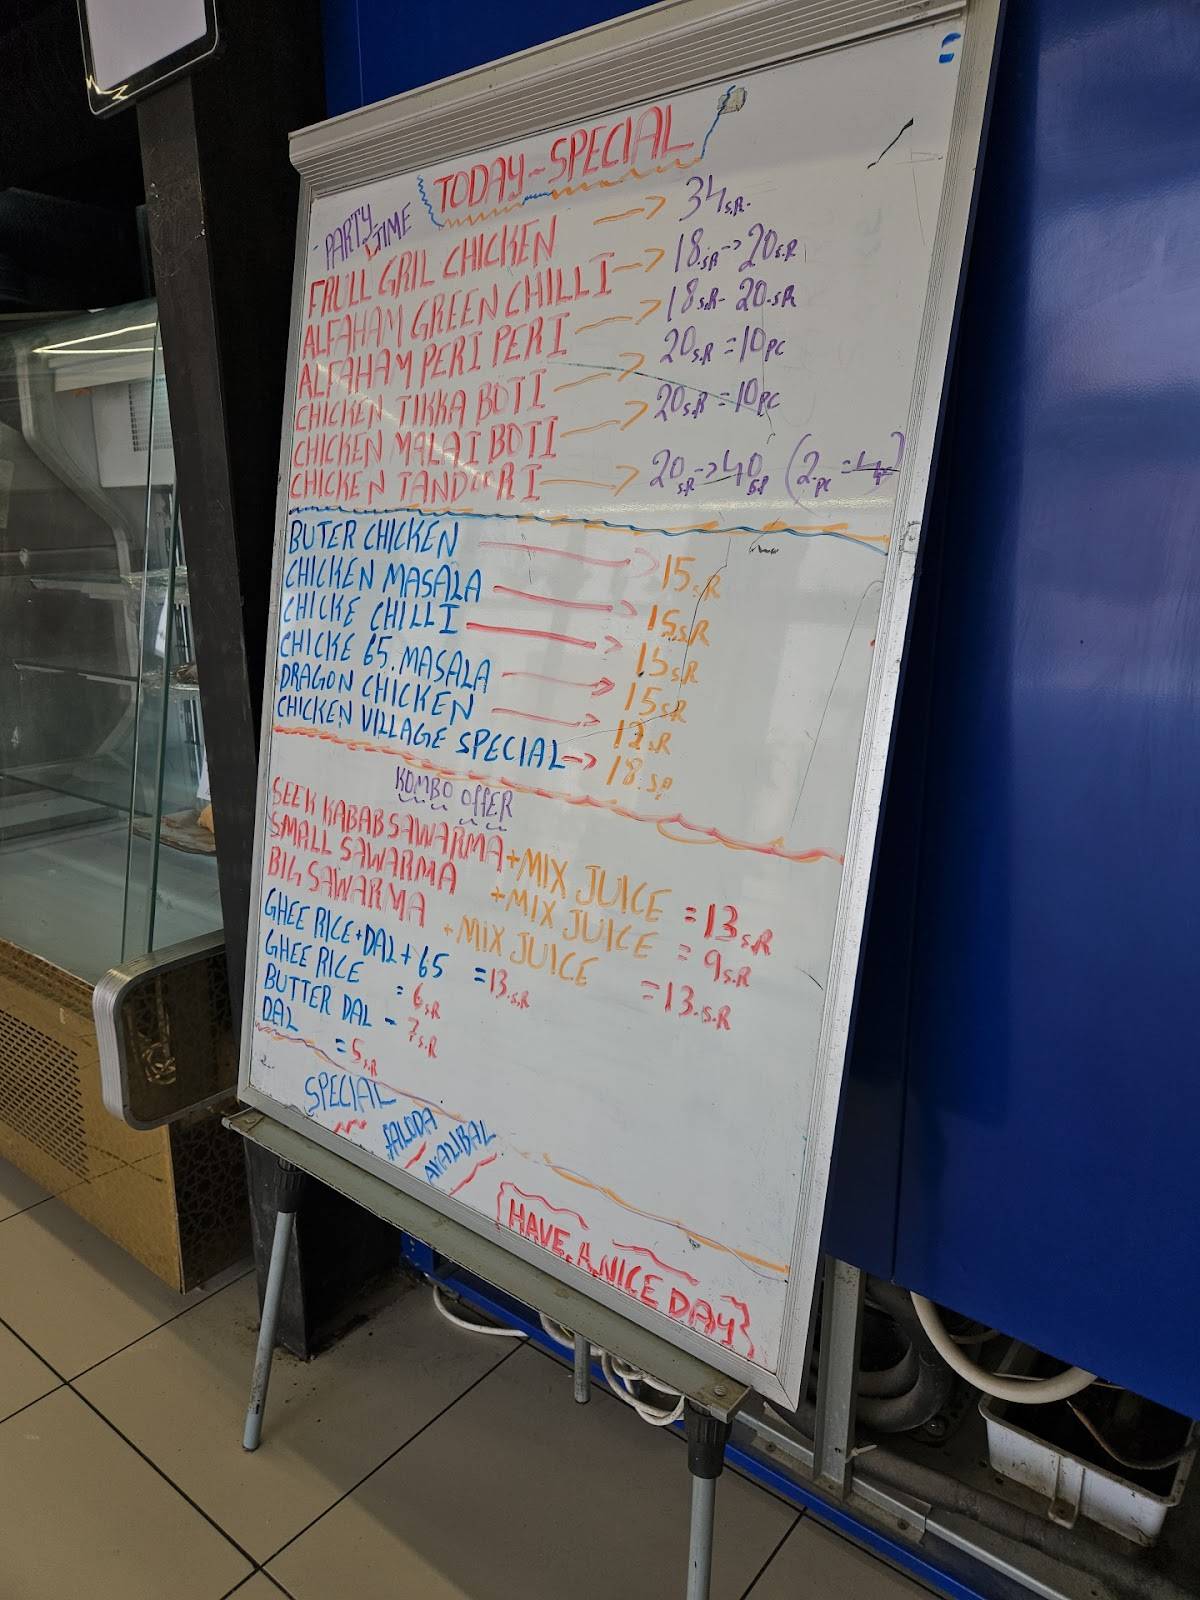 TODAY~SPECIAL
PARTY TIME
FRULL GRIL CHICKEN → 34 S.R.
ALFAHAM GREEN CHILLI → 18.S.R → 20 S.R
ALFAHAM PERI PERI → 18 S.R - 20.S.R
CHICKEN TIKKA BOTI → 20 S.R = 10 PC
CHICKEN MALAI BOTI → 20 S.R = 10 PC
CHICKEN TANDOORI → 20 S.R → 40 S.R (2.PC =
BUTER CHICKEN → 15 S.R
CHICKEN MASALA → 15 S.R
CHICKE CHILLI → 15 S.R
CHICKE 65. MASALA → 15 S.R
DRAGON CHICKEN → 12 S.R
CHICKEN VILLAGE SPECIAL → 18.S.R
KOMBO OFFER
SEEK KABAB SAWARMA + MIX JUICE = 13 S.R
SMALL SAWARMA + MIX JUICE = 9 S.R
BIG SAWARMA + MIX JUICE = 13.S.R
GHEE RICE + DAL + 65 = 13.S.R
GHEE RICE = 6 S.R
BUTTER DAL - 7 S.R
DAL = 5 S.R
SPECIAL
FALODA
AVALIBAL
HAVE A NICE DAY